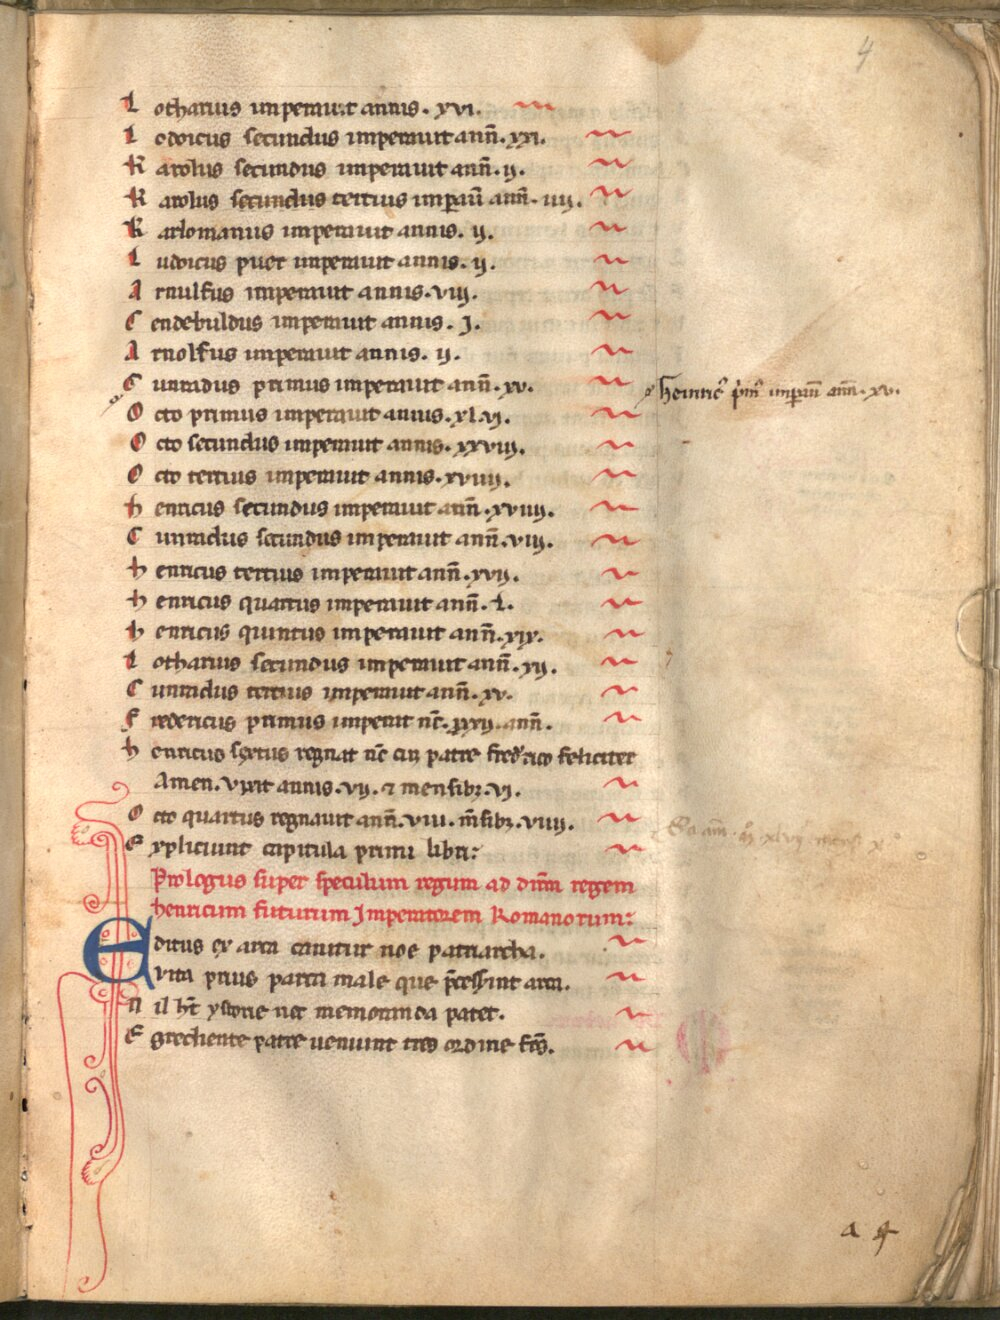 4
Lotharius imperauit annis. xvi.
Lodoicus secundus imperauit ann̄. xxi.
Karolus secundus imperauit ann̄. ij.
Karolus secundus tertius imꝑauı̄ ann̄. iiij.
Karlomanus imperauit annis. ij.
Ludoicus puer imperauit annis. ij.
Arnulfus imperauit annis. viij.
Cendebuldus imperauit annis. j.
Arnolfus imperauit annis. ij.
Cunradus primus imperauit ann̄. xv.
heinric᷒ p̍m᷒ imꝑauı̄ ann̄. xv.
Octo primus imperauit annis. xl.vi.
Octo secundus imperauit annis. xxviij.
Octo tertius imperauit annis. xviiij.
henricus secundus imperauit ann̄. xviiij.
Cunradus secundus imperauit ann̄. viij.
henricus tertius imperauit ann̄. xvij.
henricus quartus imperauit ann̄. L.
henricus quintus imperauit ann̄. xix.
Lotharius secundus imperauit ann̄. xij.
Cunradus tertius imperauit ann̄. xv.
Fredericus primus imperat nc̄. xxxij. ann̄.
henricus sextus regnat nc̄ cū patre fred'ico feliciter
Amen. vixit annis. vij. ⁊ mensibꝫ. vj.
Octo quartus regnauit ann̄. viii. m̄sibꝫ. viiij.
Expliciunt capitula primi libri:
Prologus super speculum regum ad dn̄m regem
henricum futurum Imperatorem Romanorum:
Editus ex arca canitur noe patriarcha.
Evita prius parta male que p̄cessint arca.
Nil hȳt ystorie nec memoranda patet.
Egrediente patre ueniunt tres ordine frēs.
a 4